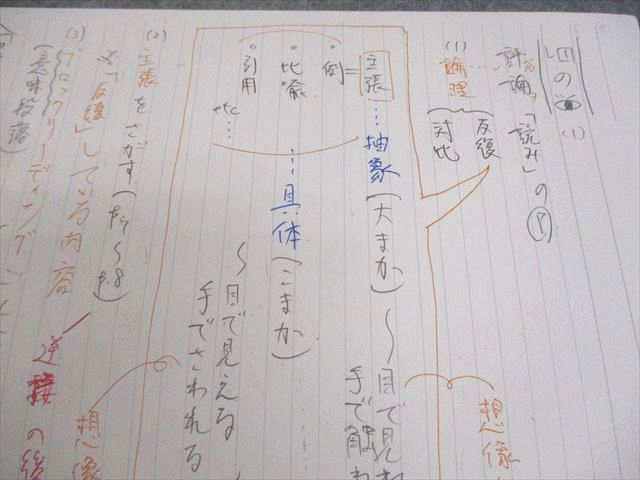 1の
(1)
評論「読み」のP
(1)
論理
反復
対比
主張…抽象(大まか)〜目で見れ
手で触わ
想像
=
・例
・比喩
・引用
etc…
…具体(こまか)
〜目で見える
手でさわれる
想像
(2)
主張をさがす(P.7〜P.8)
※「反復」している内容
逆接の後
(3)
ブロックリーディング
(意味段落)